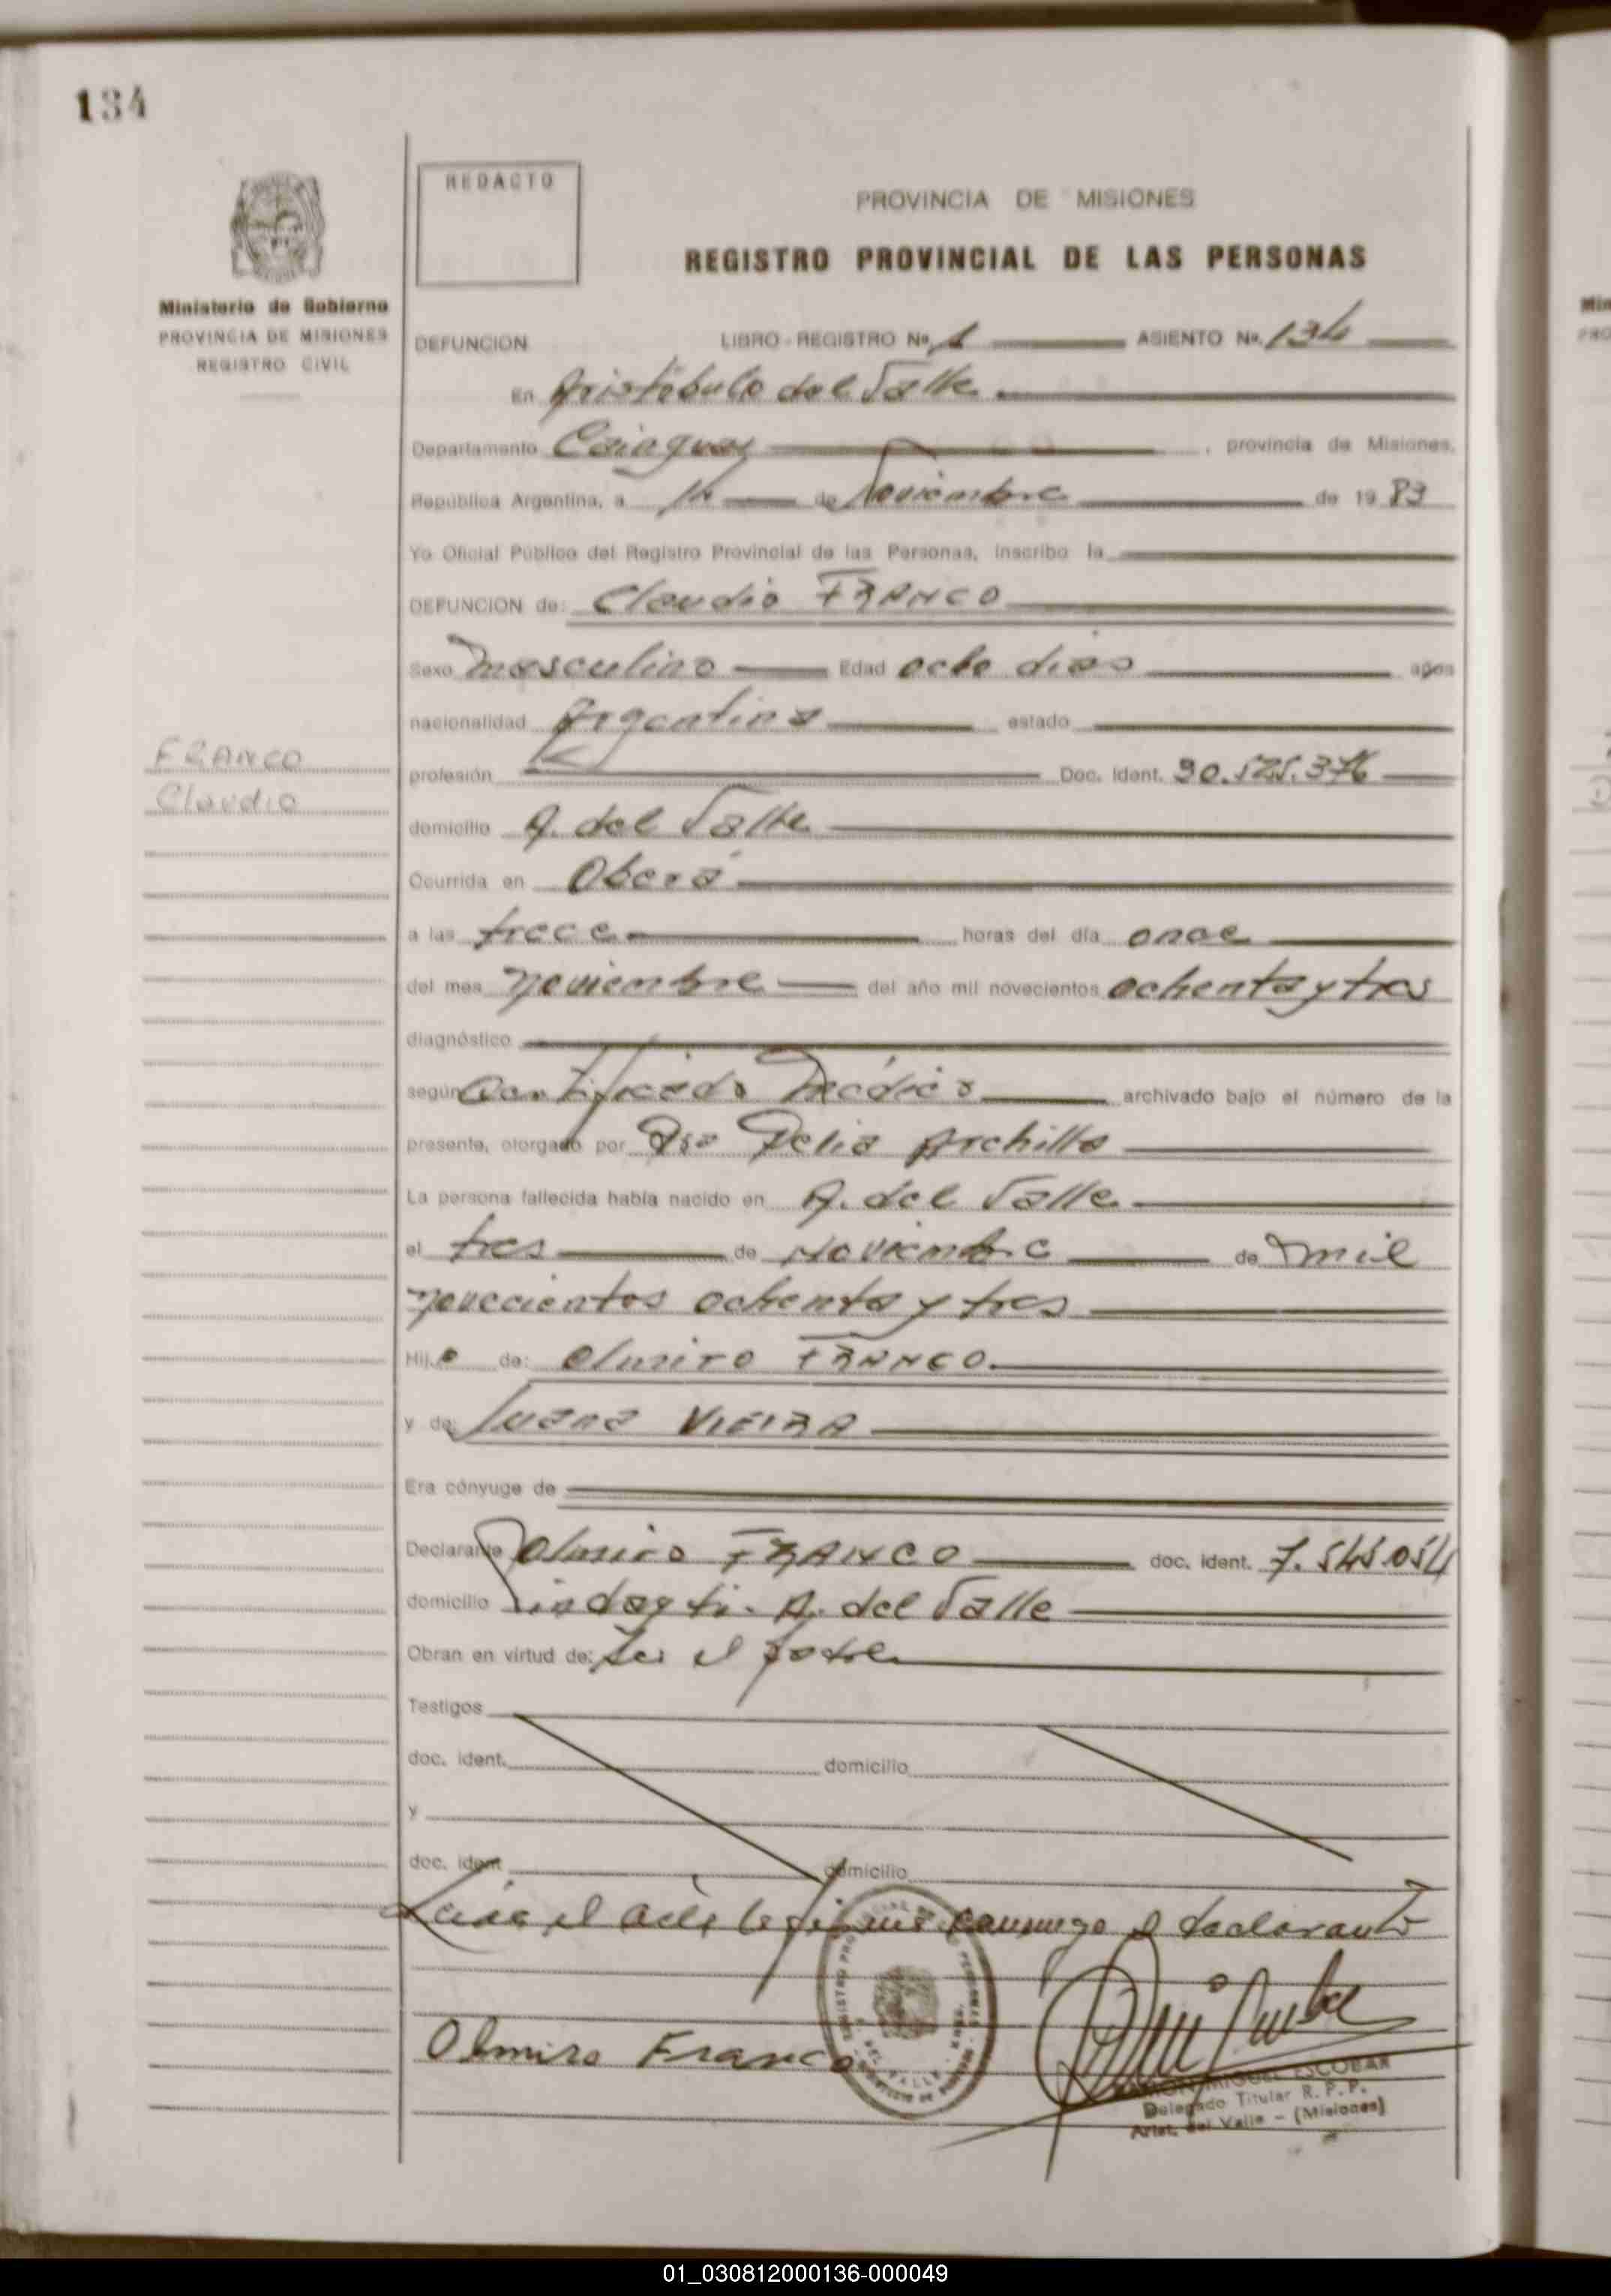 134
REDACTO
PROVINCIA DE MISIONES
REGISTRO PROVINCIAL DE LAS PERSONAS
Ministerio de Gobierno
PROVINCIA DE MISIONES
REGISTRO CIVIL
DEFUNCION LIBRO - REGISTRO No. 1 ASIENTO No. 134
En Aristóbulo del Valle
Departamento Cainguas , provincia de Misiones,
República Argentina, a 14 de Noviembre de 19 83
Yo Oficial Público del Registro Provincial de las Personas, inscribo la
DEFUNCION de: Claudio FRANCO
Sexo masculino Edad ocho dias años
nacionalidad Argentina estado
FRANCO
Claudio
profesión Doc. Ident. 30.525.376
domicilio A. del Valle
Ocurrida en Oberá
a las trece horas del día once
del mes noviembre del año mil novecientos ochenta y tres
diagnóstico
según Certificado Médico archivado bajo el número de la
presente, otorgado por Dra Delia Archilla
La persona fallecida había nacido en A. del Valle
el tres de Noviembre de mil
novecientos ochenta y tres
Hijo de: Olmiro FRANCO
y de: Juana VIEIRA
Era cónyuge de
Declarante Olmiro FRANCO doc. ident. 7.545.054
domicilio A. del Valle
Obran en virtud de: ser el padre
Testigos
doc. ident. domicilio
y
doc. ident domicilio
el acta la firma conmigo el declarante
Olmiro Franco
RAMON MIGUEL ESCOBAR
Delegado Titular R. P. P.
Arist. del Valle - (Misiones)
01_030812000136-000049